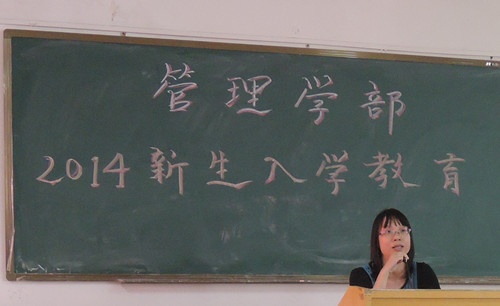 管理学部
2014新生入学教育